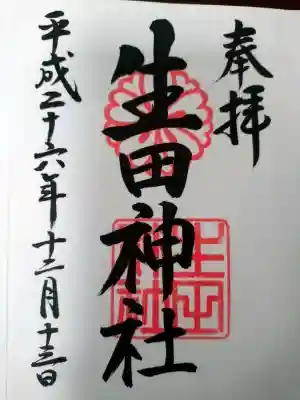 奉拝
生田神社
平成二十六年十二月十三日